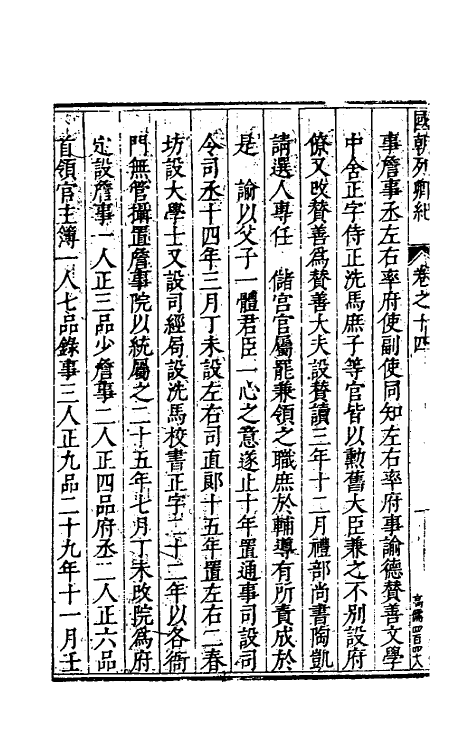 國朝列卿紀 卷之十四
事詹事丞左右率府使副使同知左右率府事諭德贊善文學
中舍正字侍正洗馬庶子等官皆以勳舊大臣兼之不別設府
僚又改贊善爲贊善大夫設贊讀三年十二月禮部尚書陶凱
請選人專任 儲宮官屬罷兼領之職庶於輔導有所責成於
是 諭以父子一體君臣一心之意遂止十年置通事司設司
令司丞十四年三月丁未設左右司直郞十五年置左右二春
坊設大學士又設司經局設洗馬校書正字二十二年以各衙
門無管攝置詹事院以統屬之二十五年七月丁未改院爲府
定設詹事一人正三品少詹事二人正四品府丞二人正六品
首領官主簿一人七品錄事三人正九品二十九年十一月壬